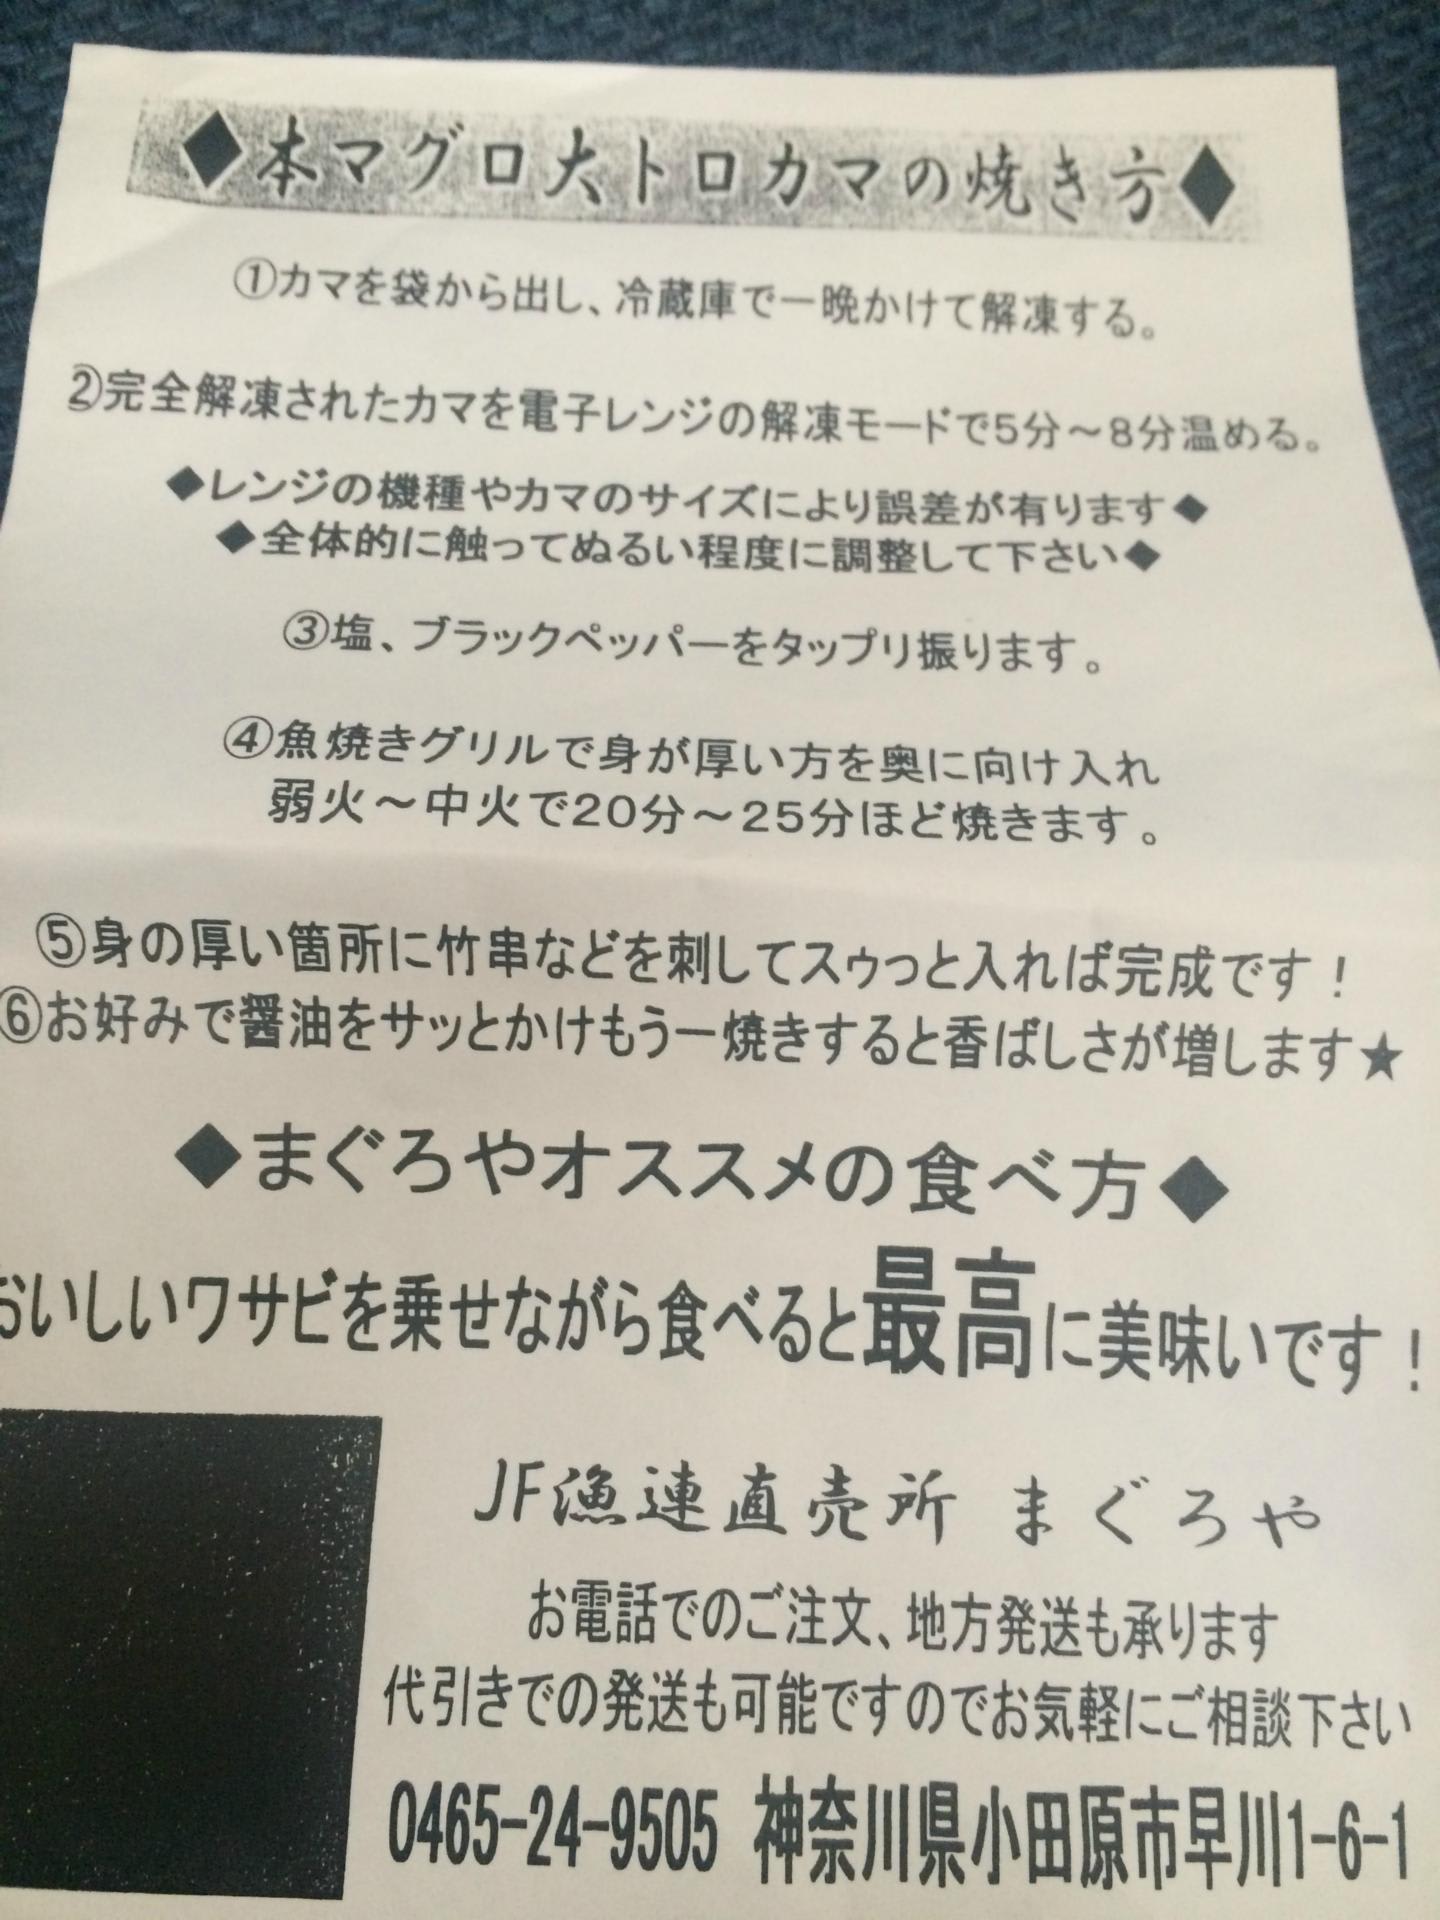 ◆本マグロ大トロカマの焼き方◆
①カマを袋から出し、冷蔵庫で一晩かけて解凍する。
②完全解凍されたカマを電子レンジの解凍モードで5分～8分温める。
◆レンジの機種やカマのサイズにより誤差が有ります◆
◆全体的に触ってぬるい程度に調整して下さい◆
③塩、ブラックペッパーをタップリ振ります。
④魚焼きグリルで身が厚い方を奥に向け入れ
弱火～中火で20分～25分ほど焼きます。
⑤身の厚い箇所に竹串などを刺してスゥっと入れば完成です！
⑥お好みで醤油をサッとかけもう一焼きすると香ばしさが増します★
◆まぐろやオススメの食べ方◆
おいしいワサビを乗せながら食べると最高に美味いです！
JF漁連直売所 まぐろや
お電話でのご注文、地方発送も承ります
代引きでの発送も可能ですのでお気軽にご相談下さい
0465-24-9505 神奈川県小田原市早川1-6-1